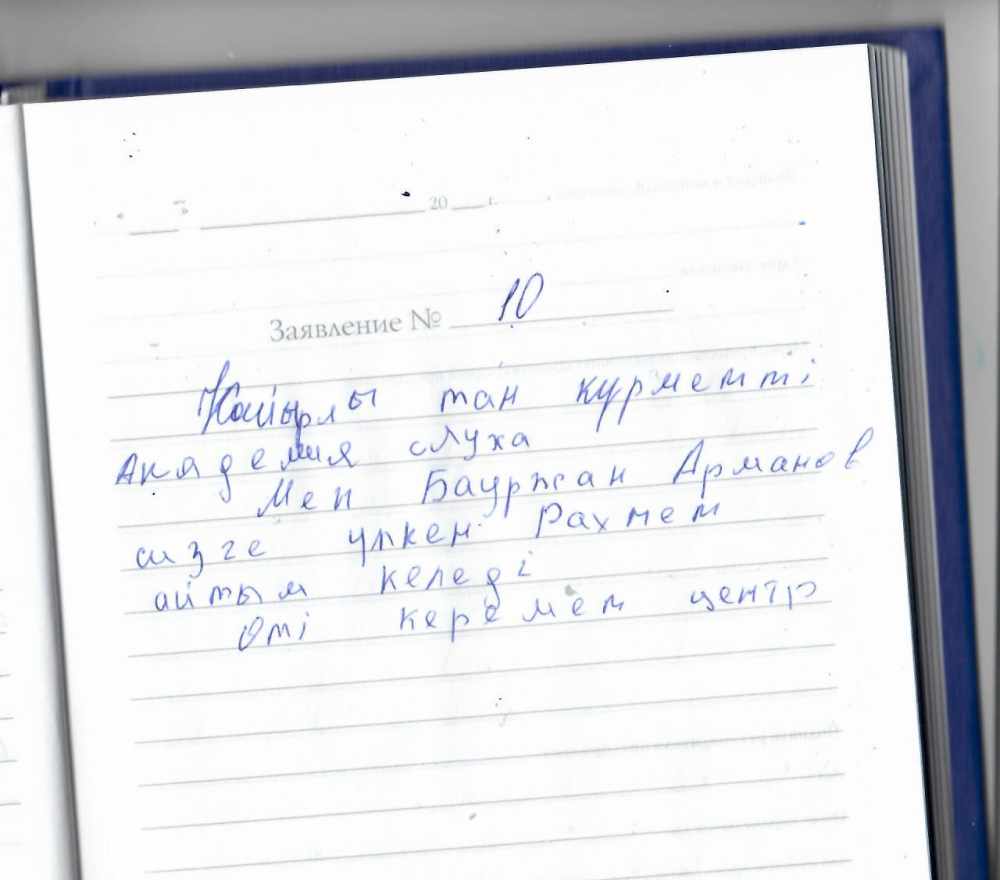 20 г.
Заявление № 10
Кайырлы тан курметті
Академия слуха
Мен Бауржан Арманов
сизге үлкен Рахмет
айтым келеді
Өті керемет центр